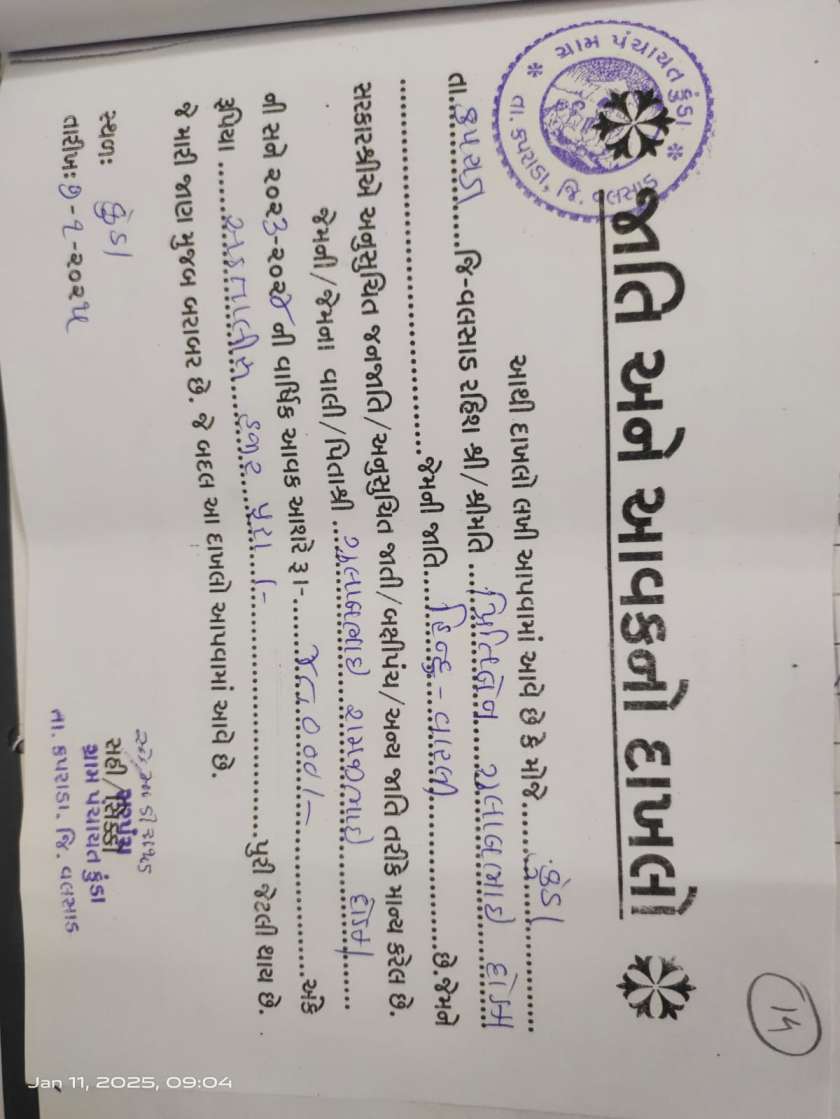 ૧૫
ગ્રામ પંચાયત કુંડા
તા. કપરાડા, જિ. વલસાડ
જાતિ અને આવકનો દાખલો
આથી દાખલો લખી આપવામાં આવે છે કે મોજે........કુંડા
તા.કપરાડા.......જિ-વલસાડ રહિશ શ્રી/શ્રીમતિ ...
...જેમની જાતિ...હિન્દુ - વારલી...છે.જેમને
સરકારશ્રીએ અનુસુચિત જનજાતિ/અનુસુચિત જાતી/બક્ષીપંચ/અન્ય જાતિ તરીકે માન્ય કરેલ છે.
જેમની/જેમના વાલી/પિતાશ્રી ...
ની સને ૨૦૨૩-૨૦૨૪ ની વાર્ષિક આવક આશરે રૂા-...૪૮૦૦૦/-...અંકે
રૂપિયા ...અડતાલીસ હજાર પુરા /-...પુરી જેટલી થાય છે.
જે મારી જાણ મુજબ બરાબર છે. જે બદલ આ દાખલો આપવામાં આવે છે.
સ્થળ: કુંડા
તારીખ: ૭-૧-૨૦૨૫
સહી/સિક્કો
સરપંચ
ગ્રામ પંચાયત કુંડા
તા. કપરાડા. જિ. વલસાડ
Jan 11, 2025, 09:04